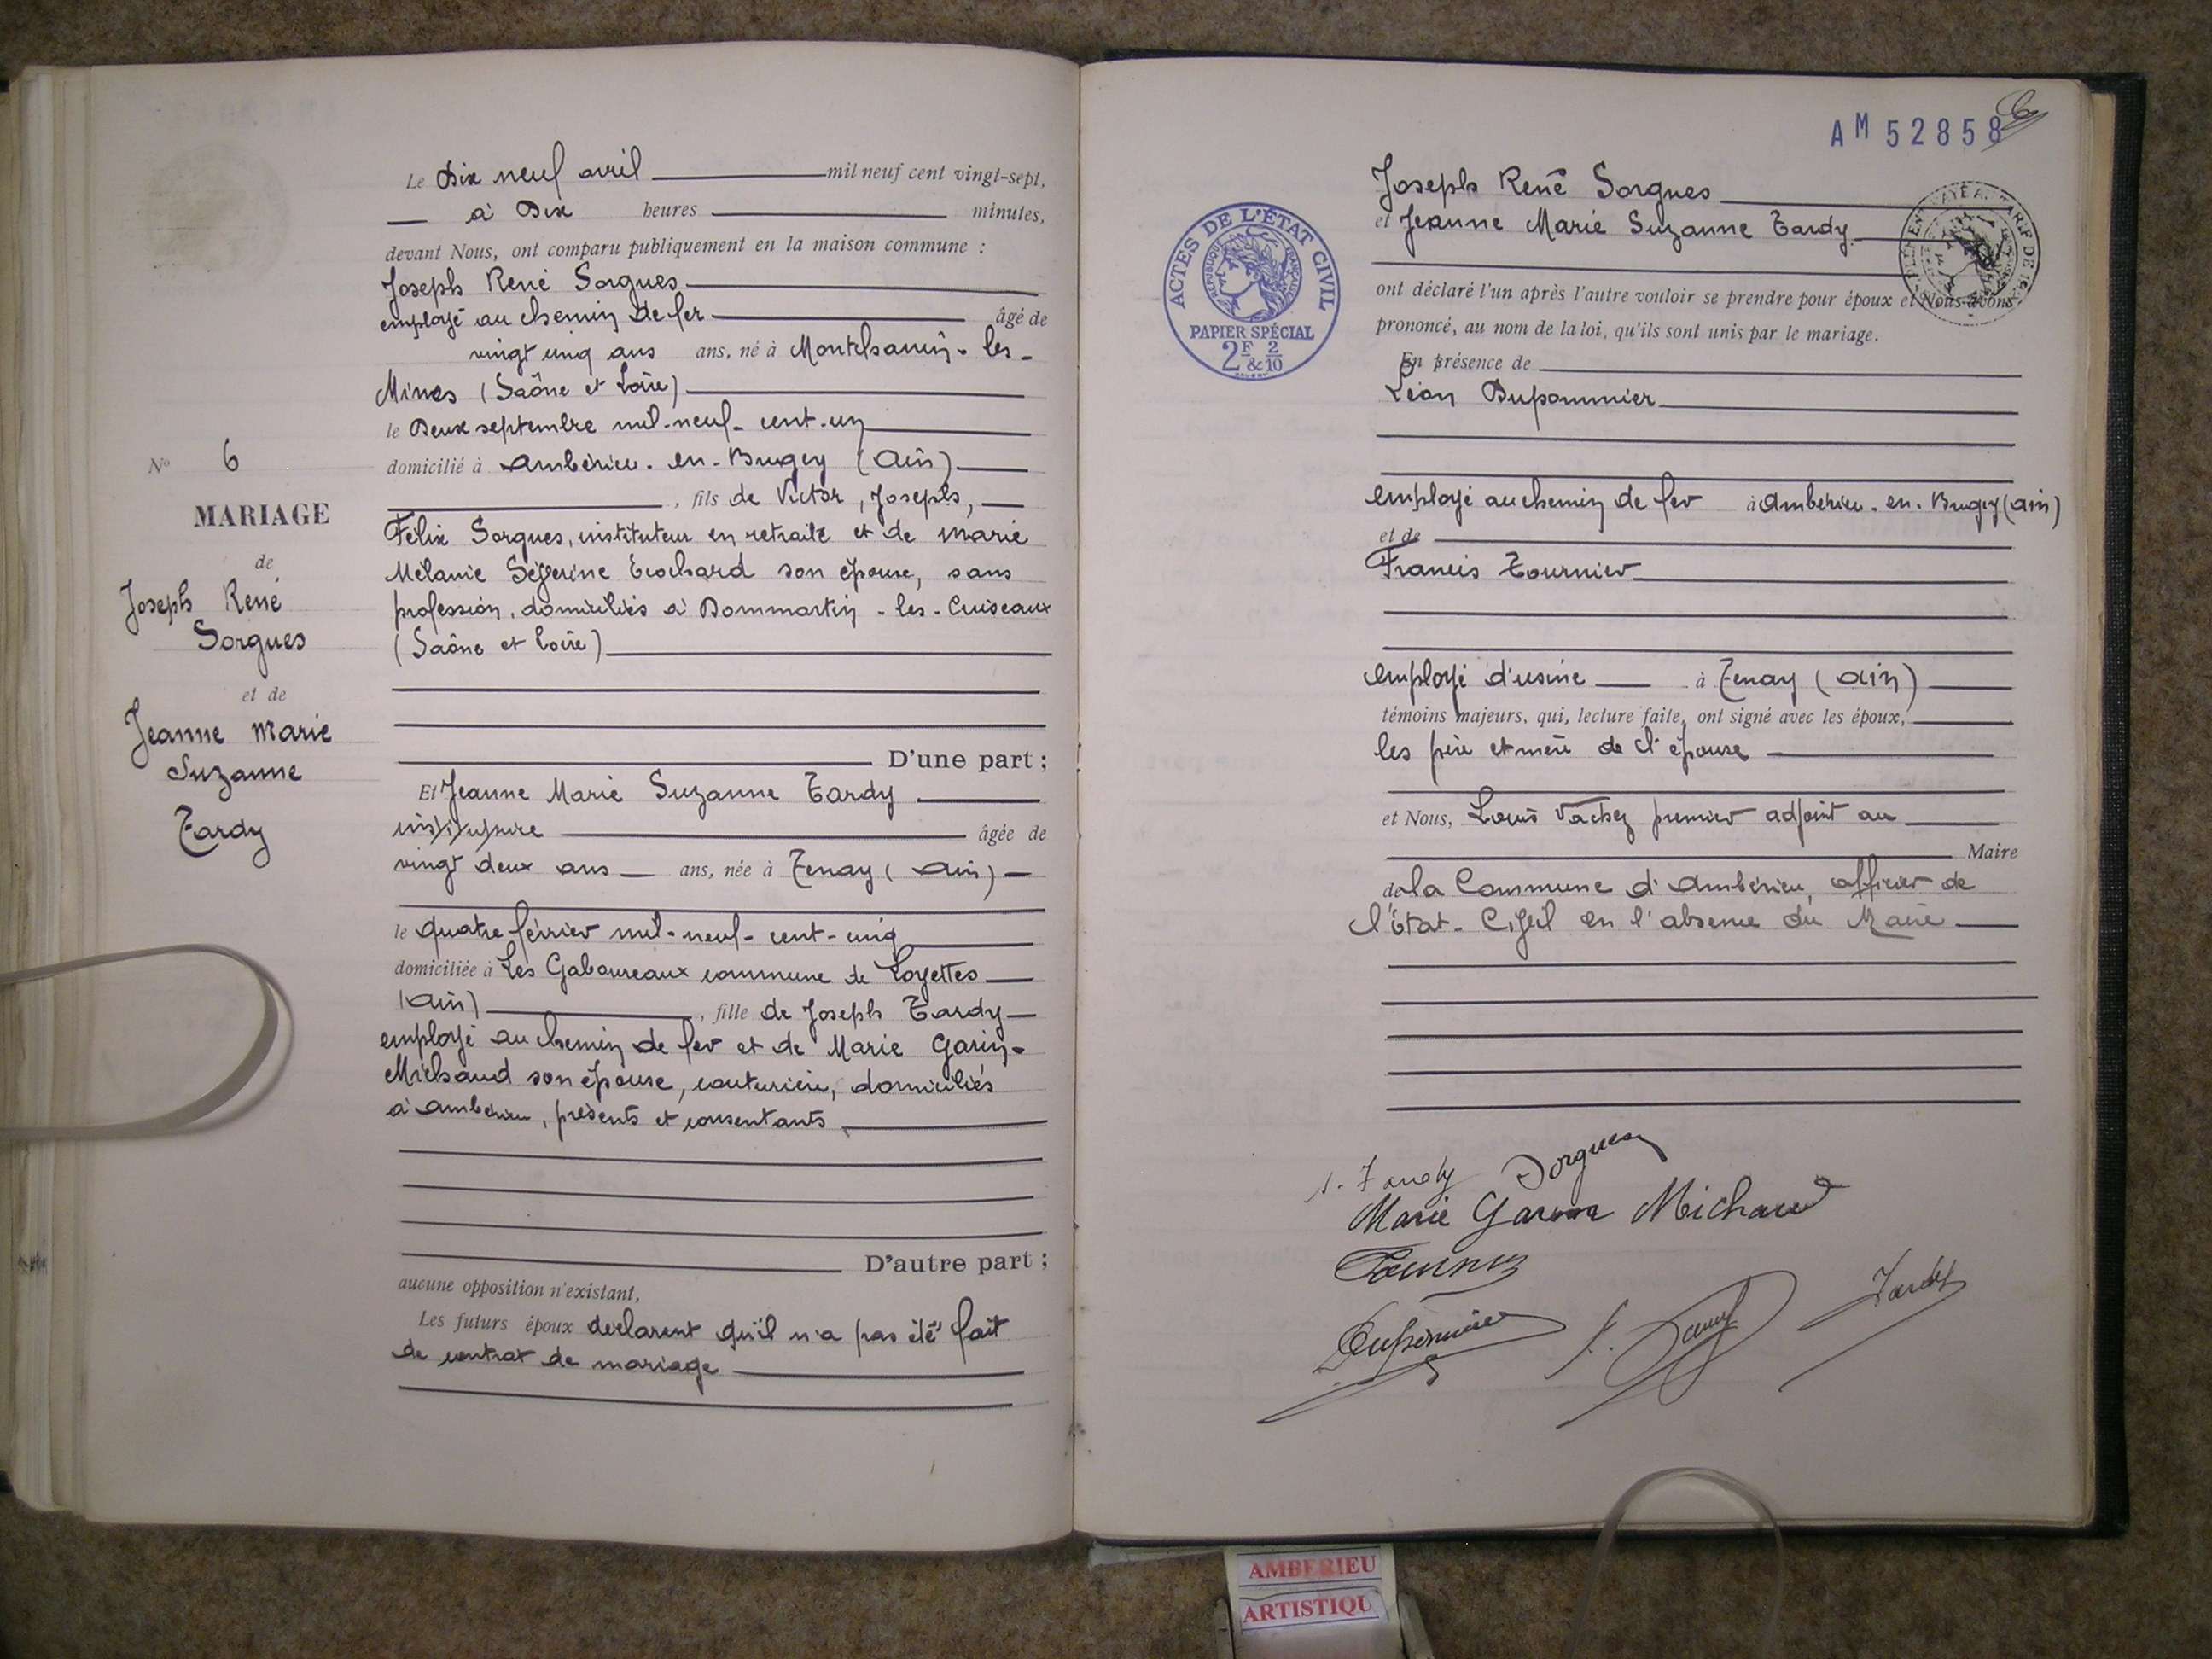 Le Dix neuf avril mil neuf cent vingt-sept,
à Dix heures minutes,
devant Nous, ont comparu publiquement en la maison commune :
Joseph René Sorgues
employé au chemin de fer âgé de
vingt cinq ans ans, né à Montchanin-les-
Mines (Saône et Loire)
le Deux septembre mil-neuf-cent-un
domicilié à Ambérieu-en-Bugey (Ain)
, fils de Victor, Joseph,
Félix Sorgues, instituteur en retraite et de Marie
Mélanie Séverine Trochard son épouse, sans
profession, domiciliés à Dommartin-les-Cuiseaux
(Saône et Loire)
D'une part ;
Et Jeanne Marie Suzanne Tardy
institutrice âgée de
vingt deux ans ans, née à Tenay (Ain)
le quatre février mil-neuf-cent-cinq
domiciliée à Les Gaboureaux commune de Loyettes
(Ain) , fille de Joseph Tardy
employé au chemin de fer et de Marie Garin-
Michaud son épouse, couturière, domiciliés
à Ambérieu, présents et consentants
D'autre part ;
aucune opposition n'existant,
Les futurs époux déclarent qu'il n'a pas été fait
de contrat de mariage
No 6
MARIAGE
de
Joseph René
Sorgues
et de
Jeanne Marie
Suzanne
Tardy
AM 52858
6
Joseph René Sorgues
et Jeanne Marie Suzanne Tardy
ont déclaré l'un après l'autre vouloir se prendre pour époux et Nous avons
prononcé, au nom de la loi, qu'ils sont unis par le mariage.
En présence de
Léon Dupommier
employé au chemin de fer à Ambérieu-en-Bugey (Ain)
et de
Francis Tournier
employé d'usine à Tenay (Ain)
témoins majeurs, qui, lecture faite, ont signé avec les époux,
les père et mère de l'épouse
et Nous, Louis Vachez premier adjoint au
Maire
de la Commune d'Ambérieu, officier de
l'État-Civil en l'absence du Maire
ACTES DE L'ÉTAT CIVIL
RÉPUBLIQUE FRANÇAISE
PAPIER SPÉCIAL
2F & 2/10
Tardy Sorgues
Marie Garin Michaud
Tournier
Dupommier
Tardy
AMBERIEU
ARTISTIQU